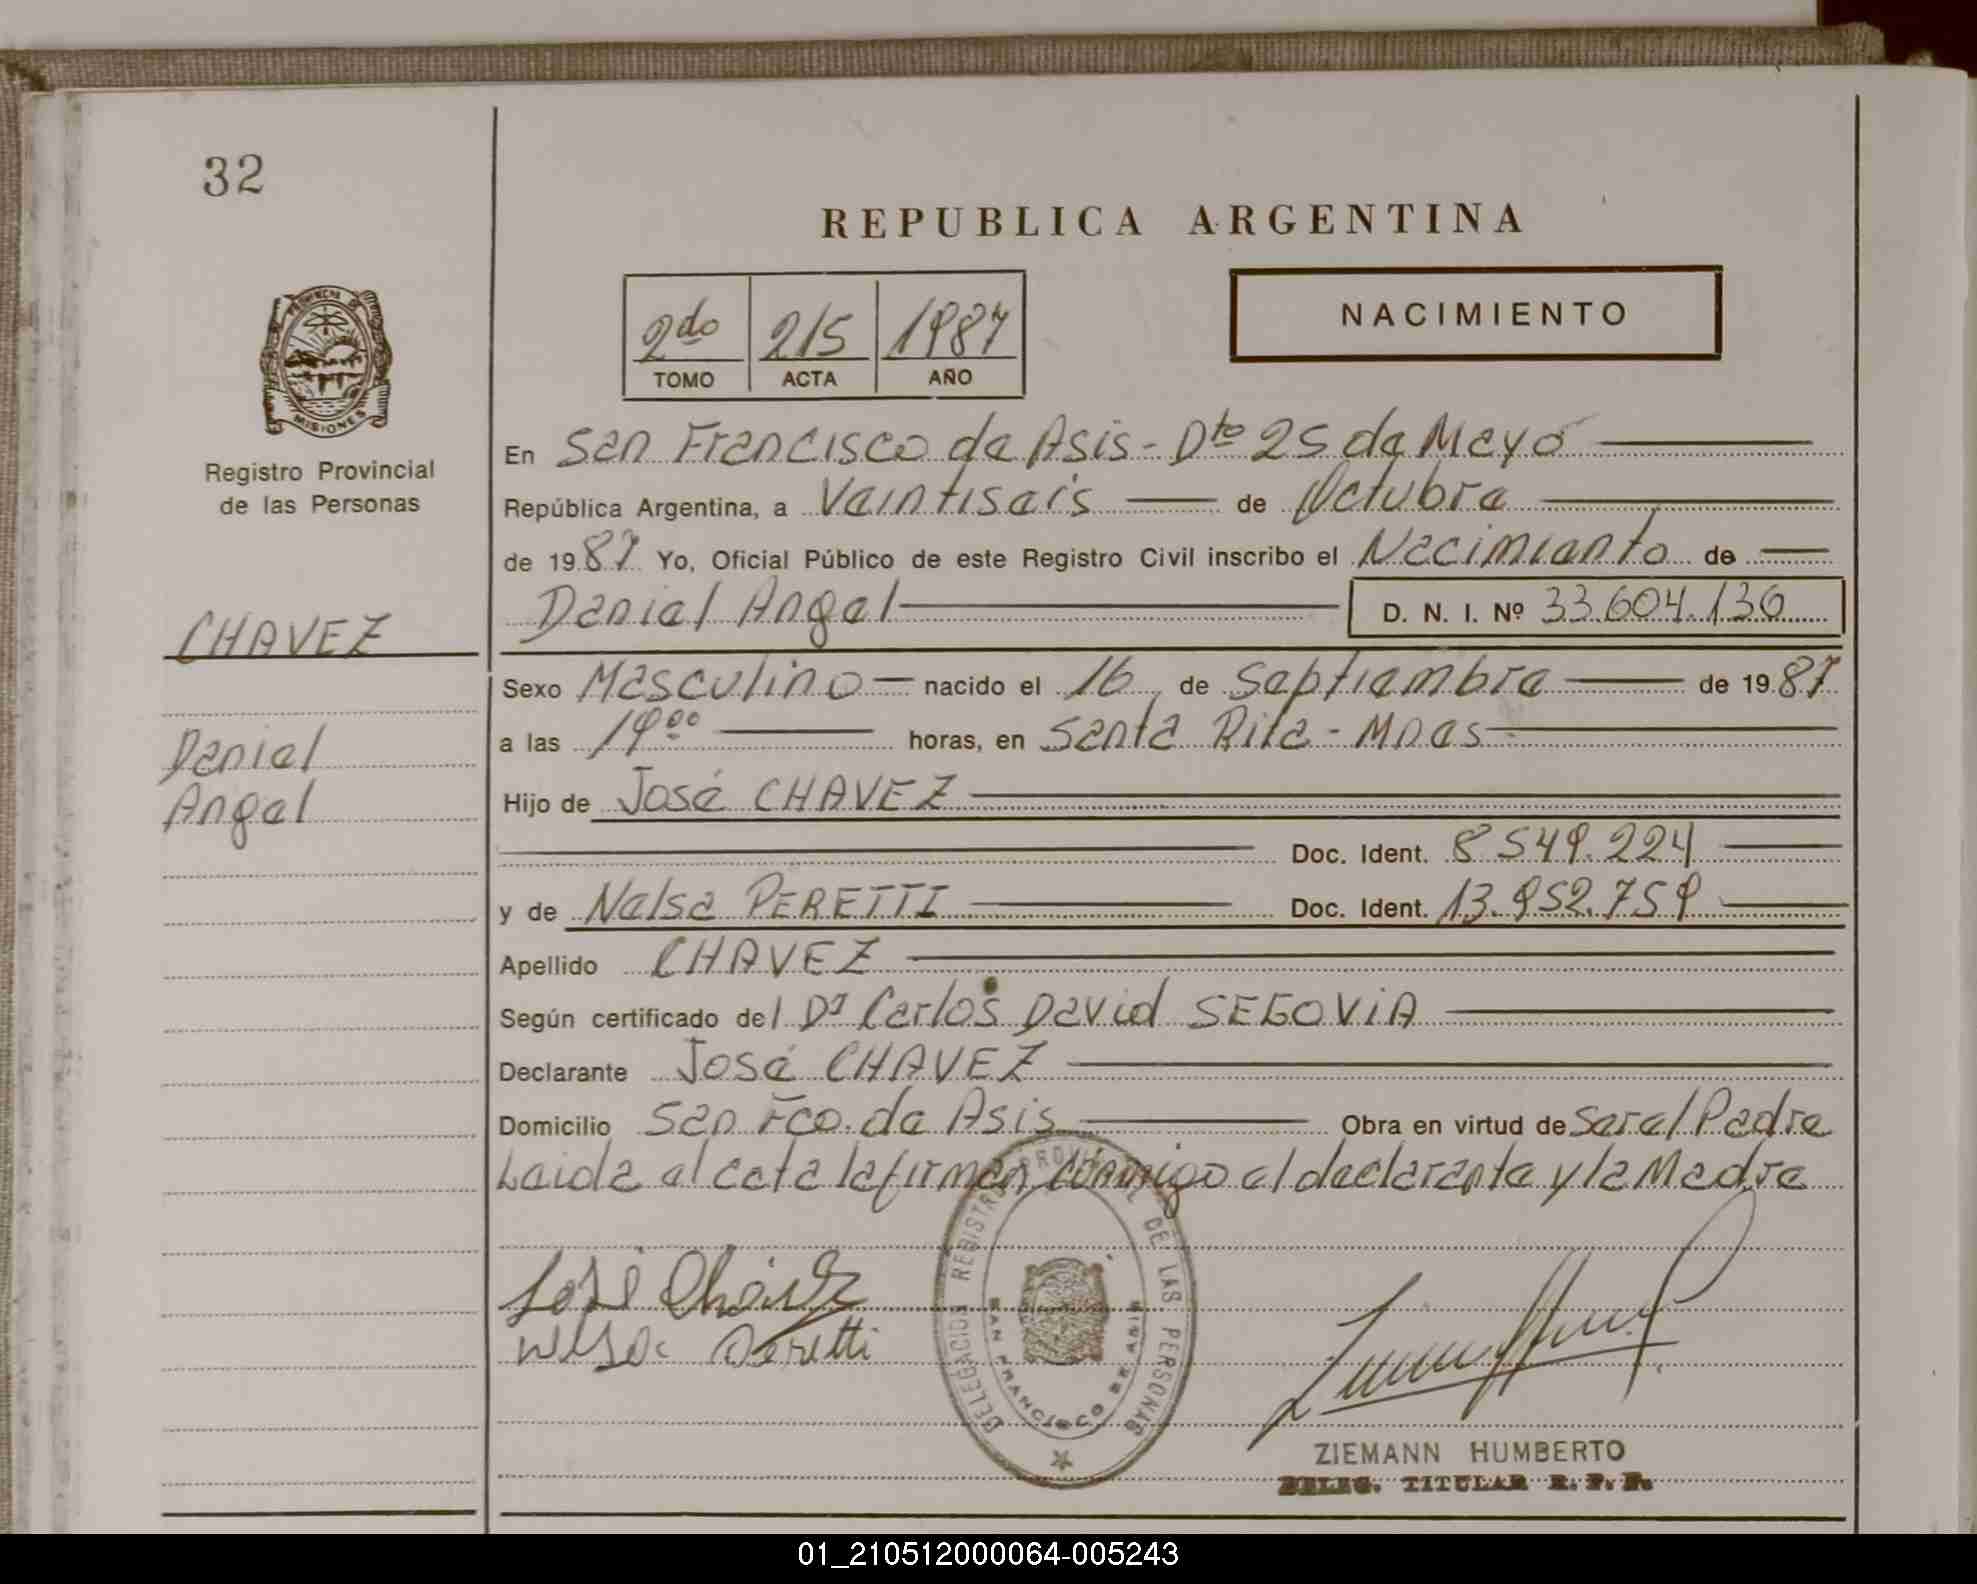 32
REPUBLICA ARGENTINA
2do 215 1987
TOMO ACTA AÑO
NACIMIENTO
PROVINCIA DE
MISIONES
Registro Provincial
de las Personas
CHAVEZ
Daniel
Angel
En San Francisco de Asis - Dto 25 de Mayo
República Argentina, a Veintiseis de Octubre
de 1987 Yo, Oficial Público de este Registro Civil inscribo el Nacimiento de
Daniel Angel D. N. I. Nº 33.604.136
Sexo Masculino nacido el 16 de Septiembre de 1987
a las 19 00 horas, en Santa Rita - Mnes
Hijo de José CHAVEZ
Doc. Ident. 8.549.224
y de Nelsa PERETTI Doc. Ident. 13.952.759
Apellido CHAVEZ
Según certificado del Dr Carlos David SEGOVIA
Declarante José CHAVEZ
Domicilio San Fco. de Asis Obra en virtud de ser el Padre
Leida el acta la firman conmigo el declarante y la Madre
José Chávez
Nelsa Peretti
DELEGACION REGISTRO PROVINCIAL DE LAS PERSONAS
SAN FRANCISCO DE ASIS
ZIEMANN HUMBERTO
DELEG. TITULAR R. P. P.
01_210512000064-005243